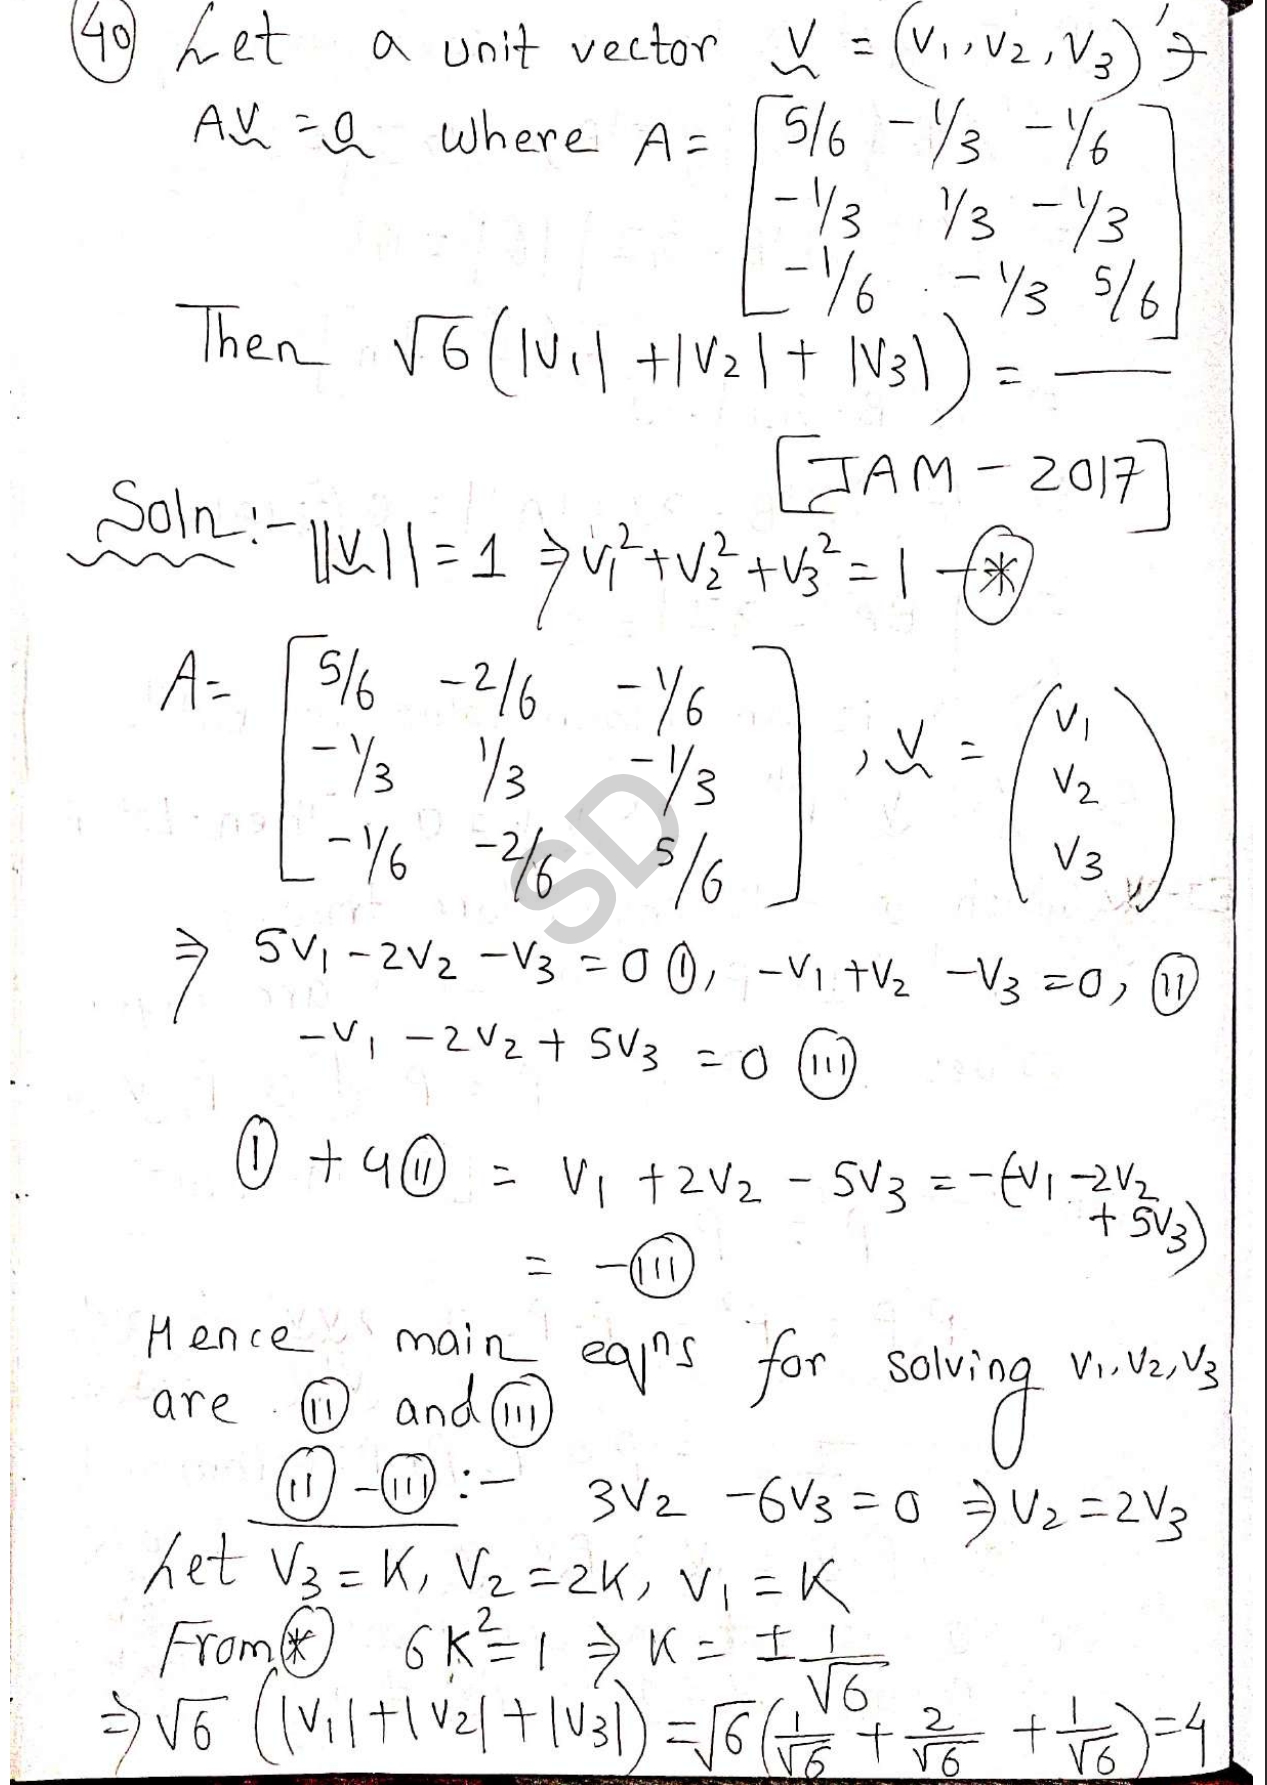 (40) Let a unit vector V = (V1, V2, V3)' ∋
AV = 0 where A = [5/6 -1/3 -1/6
-1/3 1/3 -1/3
-1/6 -1/3 5/6]
Then √6(|V1| + |V2| + |V3|) = ___
[JAM - 2017]
Soln:- ||V|| = 1 ⇒ V1² + V2² + V3² = 1 - (*)
A = [5/6 -2/6 -1/6
-1/3 1/3 -1/3
-1/6 -2/6 5/6] , V = (V1
V2
V3)
SD
⇒ 5V1 - 2V2 - V3 = 0 (I), -V1 + V2 - V3 = 0, (II)
-V1 - 2V2 + 5V3 = 0 (III)
(I) + 4(II) = V1 + 2V2 - 5V3 = -(-V1 - 2V2
+ 5V3)
= -(III)
Hence main eqns for solving V1, V2, V3
are (II) and (III)
(II) - (III) :- 3V2 - 6V3 = 0 ⇒ V2 = 2V3
Let V3 = K, V2 = 2K, V1 = K
From (*) 6K² = 1 ⇒ K = ± 1/√6
⇒ √6 (|V1| + |V2| + |V3|) = √6(1/√6 + 2/√6 + 1/√6) = 4